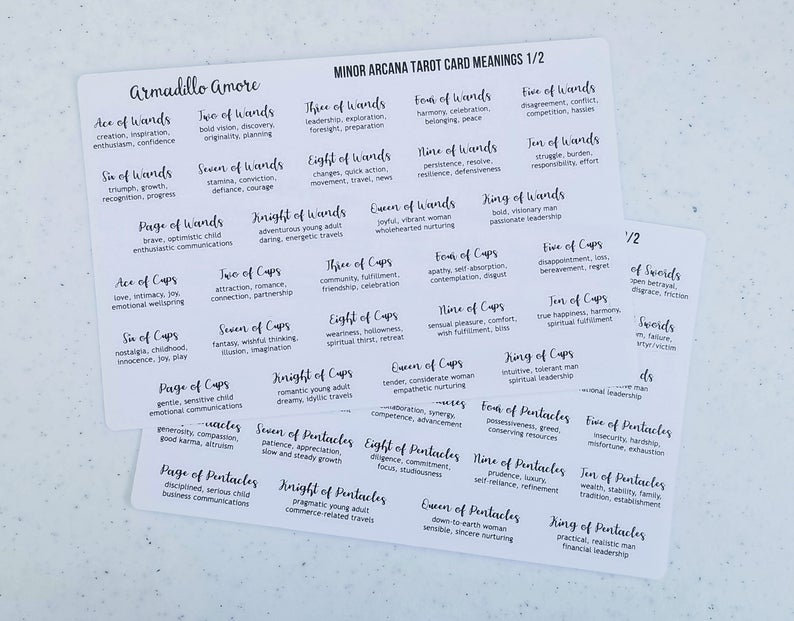 Armadillo Amore
MINOR ARCANA TAROT CARD MEANINGS 1/2
Ace of Wands
creation, inspiration,
enthusiasm, confidence
Two of Wands
bold vision, discovery,
originality, planning
Three of Wands
leadership, exploration,
foresight, preparation
Four of Wands
harmony, celebration,
belonging, peace
Five of Wands
disagreement, conflict,
competition, hassles
Six of Wands
triumph, growth,
recognition, progress
Seven of Wands
stamina, conviction,
defiance, courage
Eight of Wands
changes, quick action,
movement, travel, news
Nine of Wands
persistence, resolve,
resilience, defensiveness
Ten of Wands
struggle, burden,
responsibility, effort
Page of Wands
brave, optimistic child
enthusiastic communications
Knight of Wands
adventurous young adult
daring, energetic travels
Queen of Wands
joyful, vibrant woman
wholehearted nurturing
King of Wands
bold, visionary man
passionate leadership
Ace of Cups
love, intimacy, joy,
emotional wellspring
Two of Cups
attraction, romance,
connection, partnership
Three of Cups
community, fulfillment,
friendship, celebration
Four of Cups
apathy, self-absorption,
contemplation, disgust
Five of Cups
disappointment, loss,
bereavement, regret
Six of Cups
nostalgia, childhood,
innocence, joy, play
Seven of Cups
fantasy, wishful thinking,
illusion, imagination
Eight of Cups
weariness, hollowness,
spiritual thirst, retreat
Nine of Cups
sensual pleasure, comfort,
wish fulfillment, bliss
Ten of Cups
true happiness, harmony,
spiritual fulfillment
Page of Cups
gentle, sensitive child
emotional communications
Knight of Cups
romantic young adult
dreamy, idyllic travels
Queen of Cups
tender, considerate woman
empathetic nurturing
King of Cups
intuitive, tolerant man
spiritual leadership
/2
of Swords
open betrayal,
disgrace, friction
Swords
failure,
martyr/victim
man
leadership
collaboration, synergy,
competence, advancement
Four of Pentacles
possessiveness, greed,
conserving resources
Five of Pentacles
insecurity, hardship,
misfortune, exhaustion
generosity, compassion,
good karma, altruism
Seven of Pentacles
patience, appreciation,
slow and steady growth
Eight of Pentacles
diligence, commitment,
focus, studiousness
Nine of Pentacles
prudence, luxury,
self-reliance, refinement
Ten of Pentacles
wealth, stability, family,
tradition, establishment
Page of Pentacles
disciplined, serious child
business communications
Knight of Pentacles
pragmatic young adult
commerce-related travels
Queen of Pentacles
down-to-earth woman
sensible, sincere nurturing
King of Pentacles
practical, realistic man
financial leadership